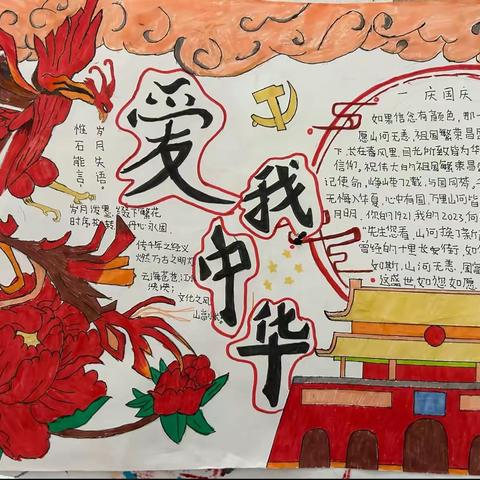 爱
我
中
华
岁月失语。
惟石能言。
岁月泼墨
绽下繁花
传千年之经义
燃万古之明灯
云海苍茫
文化之风
一庆国庆
如果信念有颜色,那一
愿山河无恙,祖国繁荣昌盛
下,长在春风里,目光所致皆为华
信仰,祝伟大的祖国繁荣昌盛
记使命,峥嵘72载,与国同梦
无悔入华夏,心中有国,万里山河皆
月明,你的1921,我的2023,何
"先生您看,山河换了新
曾经的十里长安街,如
如斯,山河无恙,国富
这盛世如您如愿